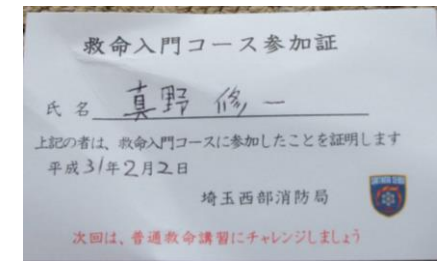 救命入門コース参加証
氏名 真野 修一
上記の者は、救命入門コースに参加したことを証明します
平成31年2月2日
埼玉西部消防局
次回は、普通救命講習にチャレンジしましょう